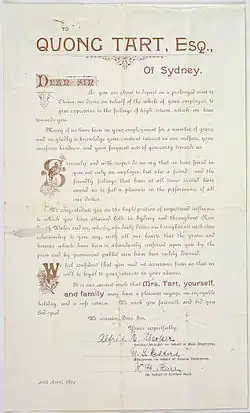 TO
QUONG TART, ESQ.,
Of Sydney.
DEAR SIR
As you are about to depart on a prolonged visit to
China, we desire on behalf of the whole of your employes, to
give expression to the feelings of high esteem which we bear
towards you.
Many of us have been in your employment for a number of years,
and we gladly acknowledge your constant interest in our welfare, your
uniform kindness, and your frequent acts of generosity towards us.
Sincerely and with respect do we say that we have found in
you not only an employer, but also a friend; and the
friendly feelings that have at all times existed have
caused us to feel a pleasure in the performance of all
our duties.
We congratulate you on the high position of respect and influence
to which you have attained both in Sydney and throughout New
South Wales and we, whose daily duties
relationship to you say with all our hearts that the praise and
honours which have been so abundantly conferred upon you by the
press and by prominent public men have been richly deserved.
We feel confident that you need no assurance from us that we
will be loyal to your interests in your absence.
It is our earnest wish that Mrs. Tart, yourself,
and family may have a pleasant voyage, an enjoyable
holiday, and a safe return. We wish you farewell and bid you
God-speed.
We remain, Dear Sir,
Yours respectfully,
on behalf of
on behalf of
On behalf of Kitchen Staff.
April, 1894